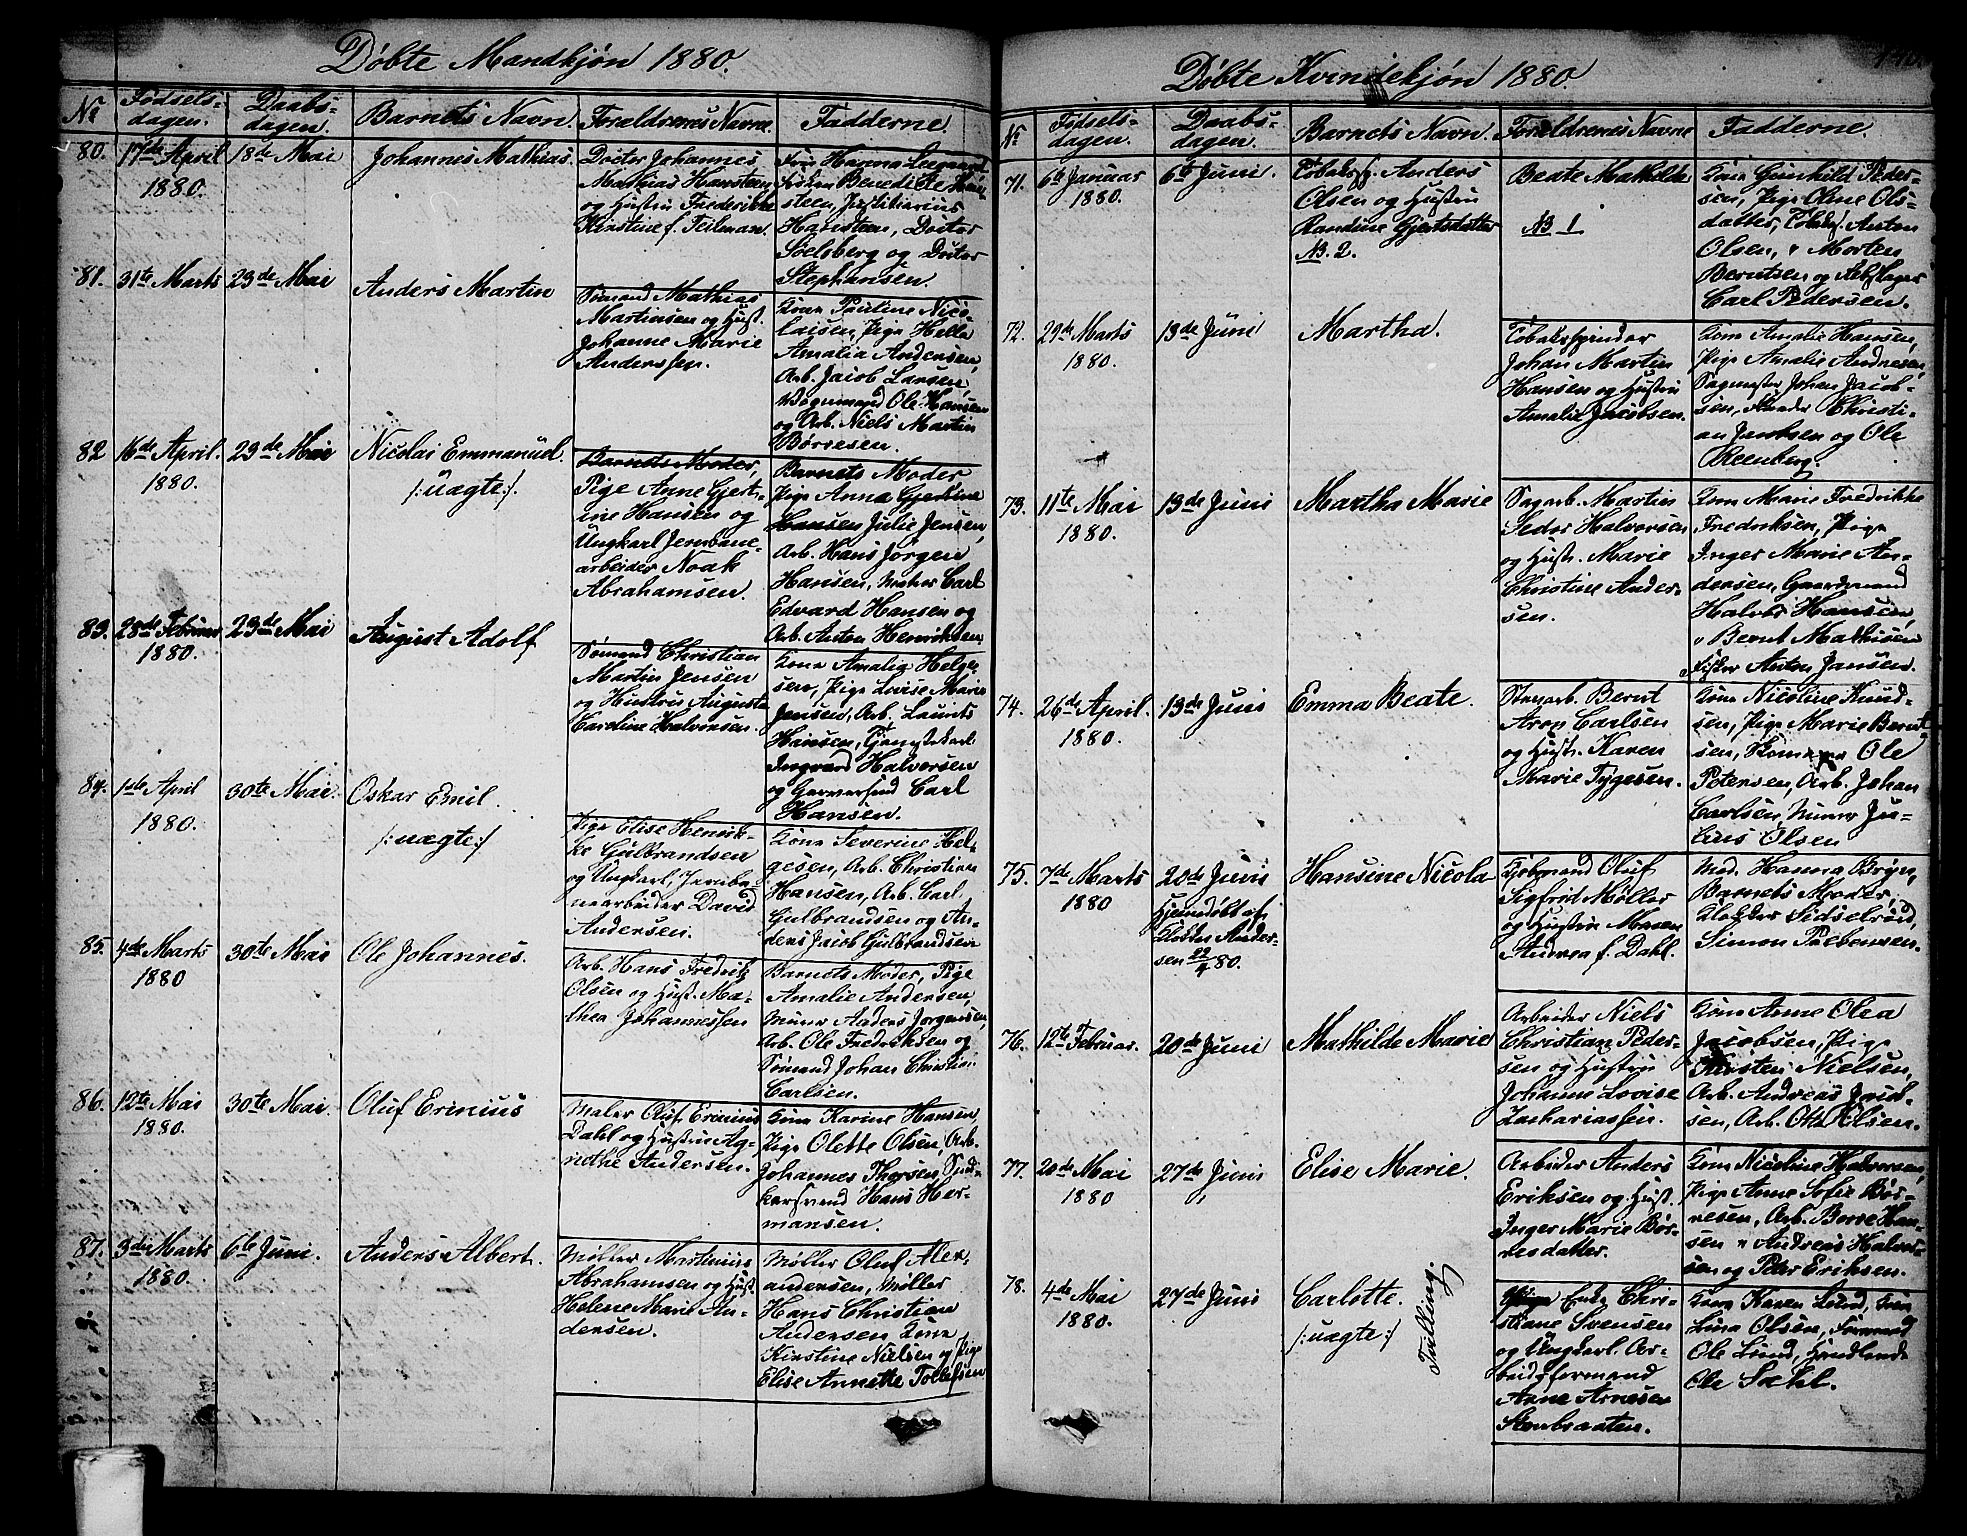 Døbte Mandkjøn 1880.
№ Fødsels-dagen. Daabs-dagen. Barnets Navn. Forældrenes Navne Fadderne.
80. 17de April 1880. 18de Mai Johannes Mathias.
Doctor Johannes
Mathias Hansteen
og Hustru Frederikke
Kirstine f. Feilman.
Frøken Benedikte Han-
steen, Justitiarius
Hansteen, Doctor
Soelsberg og Doctor
Stephansen.
81. 31te Marts 23de Mai Anders Martin
Sømand Mathias
Martinsen og Hust.
Johanne Marie
Anderssen.
Kone Pauline Nico-
laisen, Pige Hella
Amalia Andersen,
Arb. Jacob Larsen,
Vognmand Ole Hansen
og Arb. Niels Martin
Børresen.
82 16de April. 1880. 23de Mai Nicolai Emmanuel.
/:uægte:/.
Barnets Moder,
Pige Anne Gjert-
ine Hansen og
Ungkarl Jernbane-
arbeider Noak
Abrahamsen.
Barnets Moder
Pige Anna Gjertine
Hansen Julie Jensen,
Arb. Hans Jørgen
Hansen, Maler Carl
Edvard Hansen og
Arb. Anton Henriksen
83. 28de Februar 1880. 23de Mai August Adolf
Sømand Christian
Martin Jensen
og Hustru Augusta
Caroline Halvorsen.
Kone Amalia Helge-
sen, Pige Lovise Marie
Jensen, Arb. Laurits
Hansen, Tjenestekarl
Ingvard Halvorsen
og Garversvend Carl
Hansen.
84. 1ste April 1880. 30te Mai. Oskar Emil.
/:uægte:/
Pige Elise Henrik-
ke Gulbrandsen
og Ungkarl, Jernba-
nearbeider David
Andersen.
Kone Severine Hel-
gesen, Arb. Christian
Hansen, Arb. Carl
Gulbrandsen og An-
ders Jacob Gulbrandsen
85. 4de Marts 1880 30te Mai Ole Johannes.
Arb. Hans Fredrik
Olsen og Hust. Ma-
thea Johannessen
Barnets Moder, Pige
Amalie Andersen,
Murer Anders Jørgensen,
Arb. Ole Fredriksen og
Sømand Johan Christian
Carlsen.
86. 12te Mai 1880. 30te Mai. Oluf Erinius
Maler Oluf Erinius
Dahl og Hustru Ag-
nethe Andersen.
Kone Karine Hansen
Pige Olette Olsen, Arb.
Johannes Thorsen, Snd-
kersvend Hans Her-
mansen.
87. 3die Marts 1880. 6te Juni. Anders Albert.
Møller Martinius
Abrahamsen og Hust.
Helene Marie An-
dersen.
Møller Oluf Alex-
andersen, Møller
Hans Christian
Andersen Kone
Kirstine Nielsen og Pige
Elise Annette Tollefsen
Døbte Kvindekjøn 1880.
№ Fødsels-dagen. Daabs-dagen. Barnets Navn. Forældrenes Navne Fadderne.
71. 6te Januar 1880. 6te Juni.
Tobaksf. Anders
Olsen og Hustru
Randine Gjertsdatter
NB. 2.
Beate Mathilde
NB 1
Kone Gunhild Peder-
sen, Pige Oline Ols-
datter, Tobaksf. Anton
Olsen, " Morten
Berntsen og Rebslager
Carl Pedersen.
72. 29de Marts 1880. 13de Juni Martha.
Tobaksspinder
Johan Martin
Hansen og Hustru
Amalie Jacobsen.
Kone Amalie Hansen,
Pige Amalie Andresen,
Sagmester Johan Jacob-
sen, Christi-
an Jacobsen og Ole
Reenberg.
73. 11te Mai 1880. 13de Juni Martha Marie
Sagarb. Martin
Peder Halvorsen
og Hustr. Marie
Christine Ander-
sen.
Kone Marie Fredrikke
Fredriksen, Pige
Inger Marie An-
dersen, Gaardmand
Halvor Hansen,
" Bernt Mathisen
Fisker Anton Jansen.
74. 26de April. 1880. 13de Juni Emma Beate.
Stenarb. Bernt
Aron Carlsen
og Hustr. Karen
Marie Tygesen.
Kone Nicoline Knud-
sen, Pige Marie Bernt-
sen, Ole
Petersen, Arb. Johan
Carlsen, Murer Ju-
lius Olsen
75. 7de Marts 1880 20de Juni Hansine Nicola
Hjemdøbt af
Klokker Ander-
sen 22/4 80.
Kjøbmand Oluf
Sigfrid Møller
og Hustru Maren
Andrea f. Dahl.
Mad. Hanna Bryn,
Barnets Moder,
Klokker Sidselrud,
Simon Paulensen.
76. 12te Februar. 20de Juni Mathilde Marie
Arbeider Niels
Christian Peder-
sen og Hustru
Johanne Lovise
Zachariassen.
Kone Anne Olea
Jacobsen, Pige
Kirsten Nielsen,
Arb. Andreas Jacob-
sen, Arb. Otto Olsen.
77. 20de Mai 1880 27de Juni Elise Marie.
Arbeider Anders
Eriksen og Hust.
Inger Marie Bør-
resdatter.
Kone Nicoline Halvorsen,
Pige Anne Sofie Bør-
resen, Arb. Børre Han-
sen " Andreas Halvor-
sen og Peter Eriksen.
78. 4de Mai 1880. 27de Juni Carlotte.
/:uægte:/
Tvilling.
Enke Chri-
stiane Svensen
og Ungkarl. Ar-
beidsformand
Arne Arnesen
Stenbraaten.
Kone Karen Lund,
Lina Olsen, Formand
Ole Lund, Handlende
Ole Sæhl.